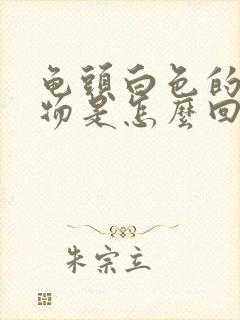 龟头白色的
物是怎麼回
朱宗立